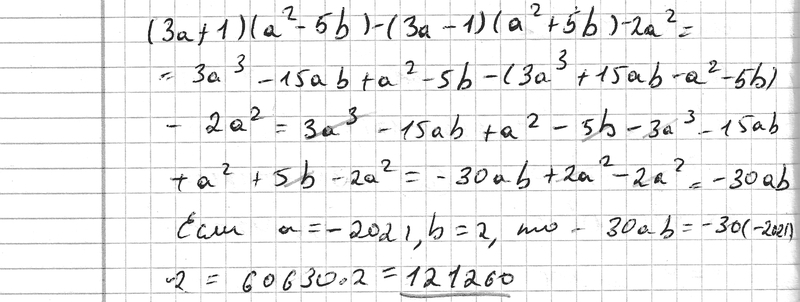 (3a+1)(a²-5b)-(3a-1)(a²+5b)-2a²=
= 3a³ -15ab+a²-5b-(3a³+15ab-a²-5b)
- 2a² = 3a³ -15ab +a² - 5b -3a³ -15ab
+a² + 5b -2a² = -30ab+2a²-2a² = -30ab
Если a=-2021, b=2, то - 30ab = -30(-2021)
·2 = 60630·2 = 121260